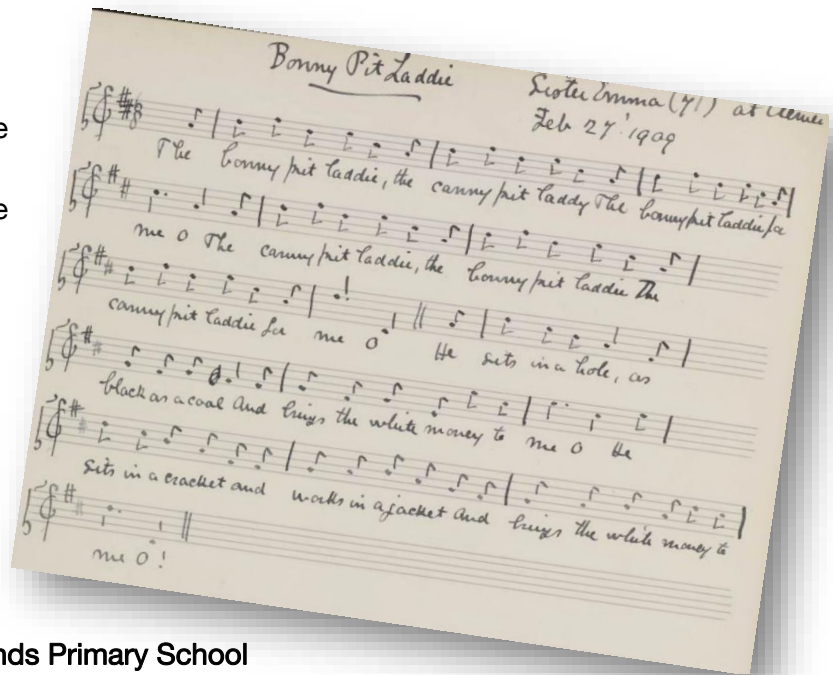 Bonny Pit Laddie
Sister Emma (71) at
Feb 27' 1909
The bonny pit laddie, the canny pit laddy The bonny pit laddie for
me O The canny pit laddie, the bonny pit laddie The
canny pit laddie for me O He sits in a hole, as
black as a coal And brings the white money to me O He
sits in a cracket and works in a jacket And brings the white money to
me O!
e
e
nds Primary School